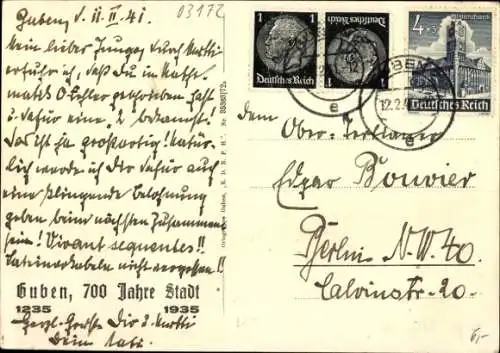 Guben, d. 11. II. 41.
03172
Mein lieber Junge, durch Mutti
erfuhr ich, daß Du in Mathe-
matik 0 Fehler geschrieben hast
u. dafür eine „2" bekamst.
Das ist ja großartig! Natür-
lich werde ich Dir dafür auch
eine klingende Belohnung
geben beim nächsten Zusammen-
sein! Vivant sequentes!!
Lateinvokabeln nicht vergessen!!
Guben, 700 Jahre Stadt
1235 1935
Herzl. Grüße Dir u. Mutti
Dein Vati.
1 1
Deutsches Reich
Deutsches Reich
4
Deutsches Reich
GUBEN
12.2.
e
e
Dem
Ober-Tertianer
Edgar Bouvier
Berlin N.W. 40.
Calvinstr. 20.